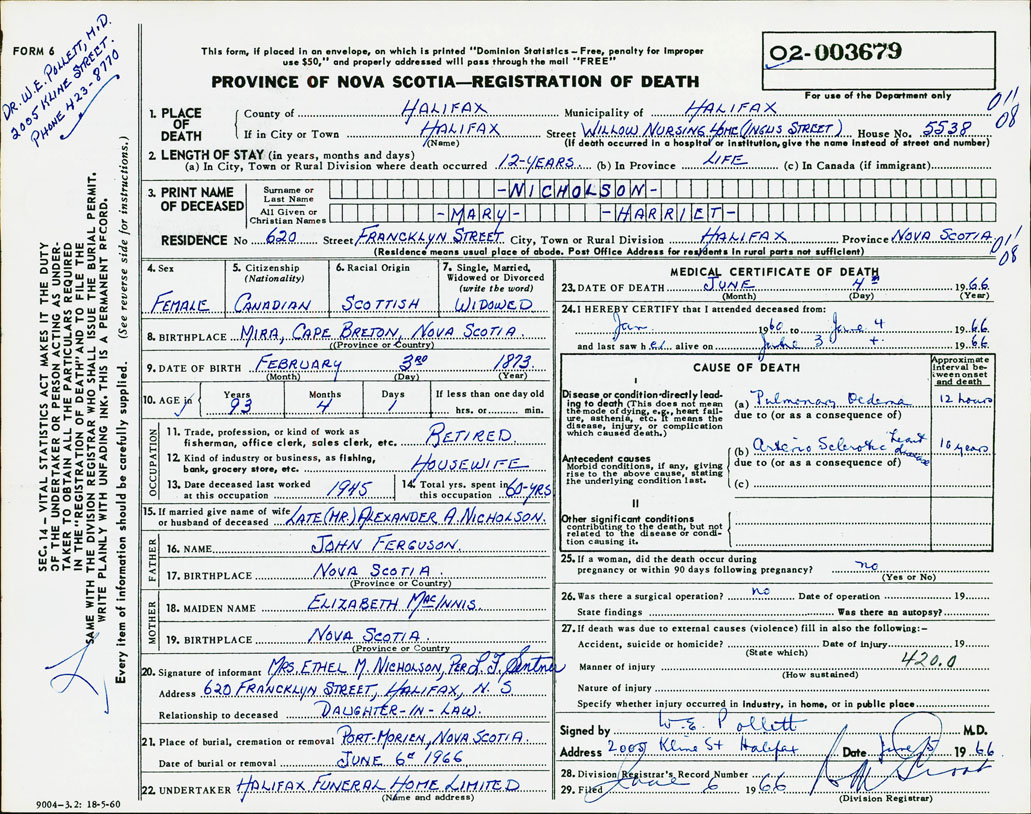 FORM 6
DR. W.E. POLLETT, M.D.
2005 KLINE STREET.
PHONE 423-8770
This form, if placed in an envelope, on which is printed "Dominion Statistics – Free, penalty for improper
use $50," and properly addressed will pass through the mail "FREE"
PROVINCE OF NOVA SCOTIA—REGISTRATION OF DEATH
02-003679
For use of the Department only
011
08
1. PLACE OF DEATH
County of HALIFAX Municipality of HALIFAX
If in City or Town HALIFAX Street WILLOW NURSING HOME (INGLIS STREET) House No. 5538
(Name) (If death occurred in a hospital or institution, give the name instead of street and number)
2. LENGTH OF STAY (in years, months and days)
(a) In City, Town or Rural Division where death occurred 12-YEARS (b) In Province LIFE (c) In Canada (if immigrant)
3. PRINT NAME OF DECEASED
Surname or Last Name -NICHOLSON-
All Given or Christian Names -MARY- -HARRIET-
RESIDENCE No 620 Street FRANCKLYN STREET City, Town or Rural Division HALIFAX Province NOVA SCOTIA
011
08
(Residence means usual place of abode. Post Office Address for residents in rural parts not sufficient)
4. Sex
FEMALE
5. Citizenship
(Nationality)
CANADIAN
6. Racial Origin
SCOTTISH
7. Single, Married,
Widowed or Divorced
(write the word)
WIDOWED
8. BIRTHPLACE MIRA, CAPE BRETON, NOVA SCOTIA
(Province or Country)
9. DATE OF BIRTH FEBRUARY 3RD 1873
(Month) (Day) (Year)
10. AGE in Years 93 Months 4 Days 1 If less than one day old
hrs. or min.
OCCUPATION
11. Trade, profession, or kind of work as
fisherman, office clerk, sales clerk, etc. RETIRED
12. Kind of industry or business, as fishing,
bank, grocery store, etc. HOUSEWIFE
13. Date deceased last worked
at this occupation 1945
14. Total yrs. spent in
this occupation 60-YRS
15. If married give name of wife
or husband of deceased LATE (MR.) ALEXANDER A. NICHOLSON.
FATHER
16. NAME JOHN FERGUSON.
17. BIRTHPLACE NOVA SCOTIA
(Province or Country)
MOTHER
18. MAIDEN NAME ELIZABETH MACINNIS.
19. BIRTHPLACE NOVA SCOTIA.
(Province or Country
20. Signature of informant MRS. ETHEL M. NICHOLSON, PER L.F. Sentner
Address 620 FRANCKLYN STREET, HALIFAX, N.S
Relationship to deceased DAUGHTER-IN-LAW.
21. Place of burial, cremation or removal PORT-MORIEN, NOVA SCOTIA.
Date of burial or removal JUNE 6 1966
22. UNDERTAKER HALIFAX FUNERAL HOME LIMITED
(Name and address)
9004-3.2: 18-5-60
MEDICAL CERTIFICATE OF DEATH
23. DATE OF DEATH JUNE 4th 1966
(Month) (Day) (Year)
24. I HEREBY CERTIFY that I attended deceased from:
Jan. 1960 to June 4 1966
and last saw her alive on June 3 1966
CAUSE OF DEATH
Approximate interval between onset and death
I
Disease or condition directly leading to death (This does not mean the mode of dying, e.g., heart failure, asthenia, etc. It means the disease, injury, or complication which caused death.)
(a) Pulmonary Oedema 12 hours
due to (or as a consequence of)
Antecedent causes
Morbid conditions, if any, giving rise to the above cause, stating the underlying condition last.
(b) Arterio Sclerotic heart disease 10 years
due to (or as a consequence of)
(c)
II
Other significant conditions
contributing to the death, but not related to the disease or condition causing it.
25. If a woman, did the death occur during
pregnancy or within 90 days following pregnancy? no
(Yes or No)
26. Was there a surgical operation? no Date of operation 19
State findings Was there an autopsy?
27. If death was due to external causes (violence) fill in also the following:–
Accident, suicide or homicide? Date of injury 19
(State which)
420.0
Manner of injury
(How sustained)
Nature of injury
Specify whether injury occurred in industry, in home, or in public place
Signed by W.E. Pollett M.D.
Address 2005 Kline St Halifax Date June 5 1966
28. Division Registrar's Record Number
29. Filed June 6 1966
(Division Registrar)
SEC. 14 – VITAL STATISTICS ACT MAKES IT THE DUTY
OF THE UNDERTAKER OR PERSON ACTING AS UNDER-
TAKER TO OBTAIN ALL THE PARTICULARS REQUIRED
IN THE "REGISTRATION OF DEATH" AND TO FILE THE
SAME WITH THE DIVISION REGISTRAR WHO SHALL ISSUE THE BURIAL PERMIT.
WRITE PLAINLY WITH UNFADING INK. THIS IS A PERMANENT RECORD.
Every item of information should be carefully supplied. (See reverse side for instructions.)